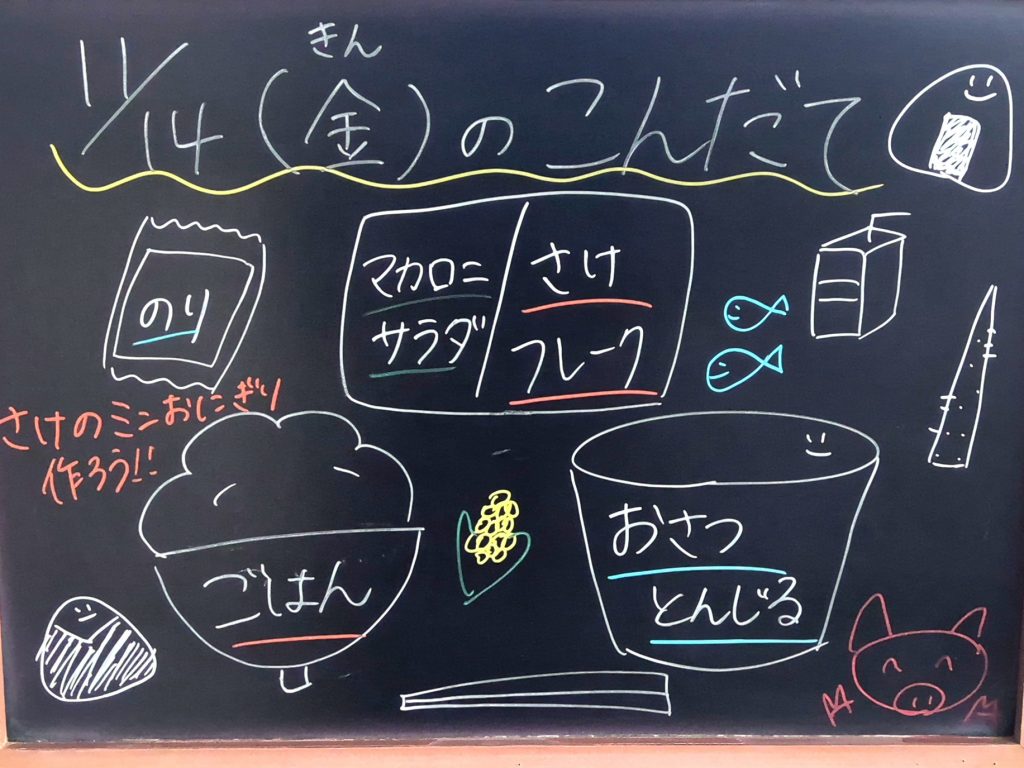 きん
11/14(金)のこんだて
のり
マカロニ
サラダ
さけ
フレーク
さけのミンおにぎり
作ろう!!
ごはん
おさつ
とんじる